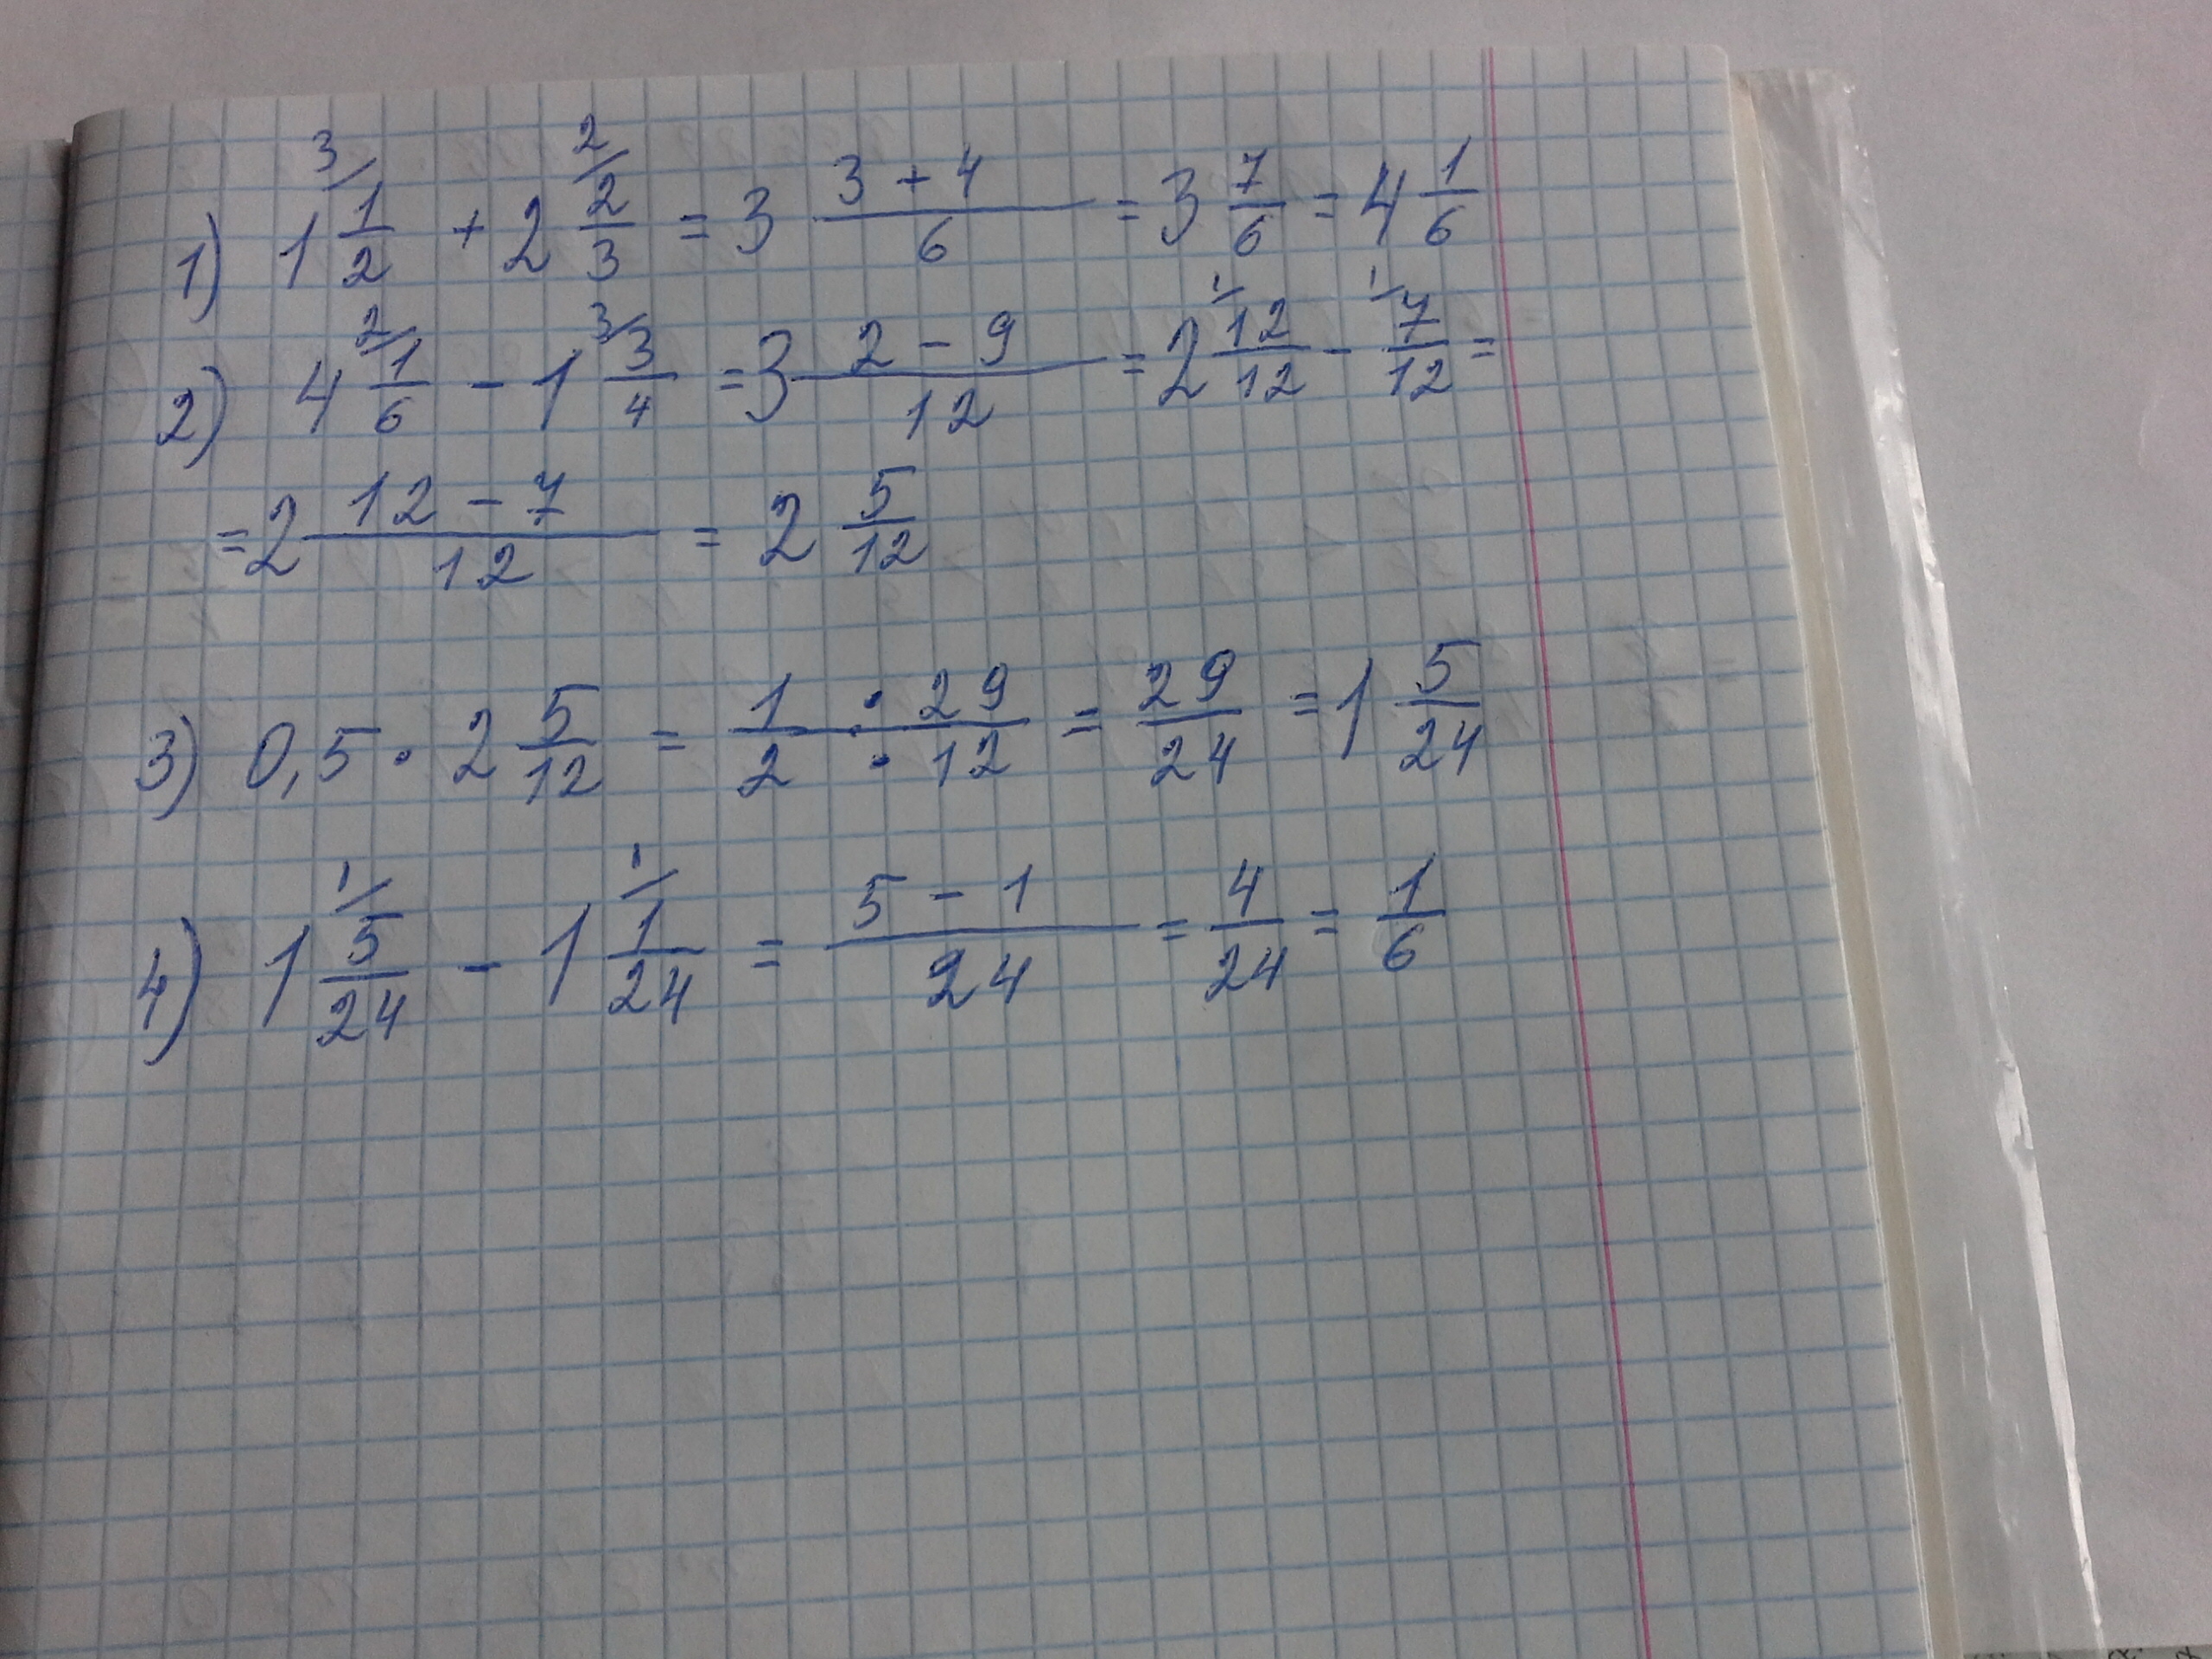 1) 1 3/ 1/2 + 2 2/ 2/3 = 3 (3 + 4)/6 = 3 7/6 = 4 1/6
2) 4 2/ 1/6 - 1 3/ 3/4 = 3 (2 - 9)/12 = 2 1/ 12/12 - 1/ 7/12 =
= 2 (12 - 7)/12 = 2 5/12
3) 0,5 · 2 5/12 = (1 · 29)/(2 · 12) = 29/24 = 1 5/24
4) 1 1/ 5/24 - 1 1/ 1/24 = (5 - 1)/24 = 4/24 = 1/6